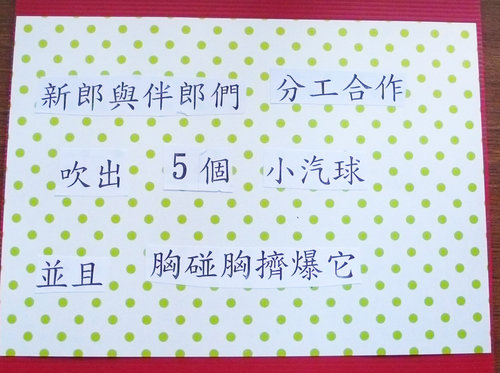 新郎與伴郎們 分工合作
吹出 5個 小汽球
並且 胸碰胸擠爆它